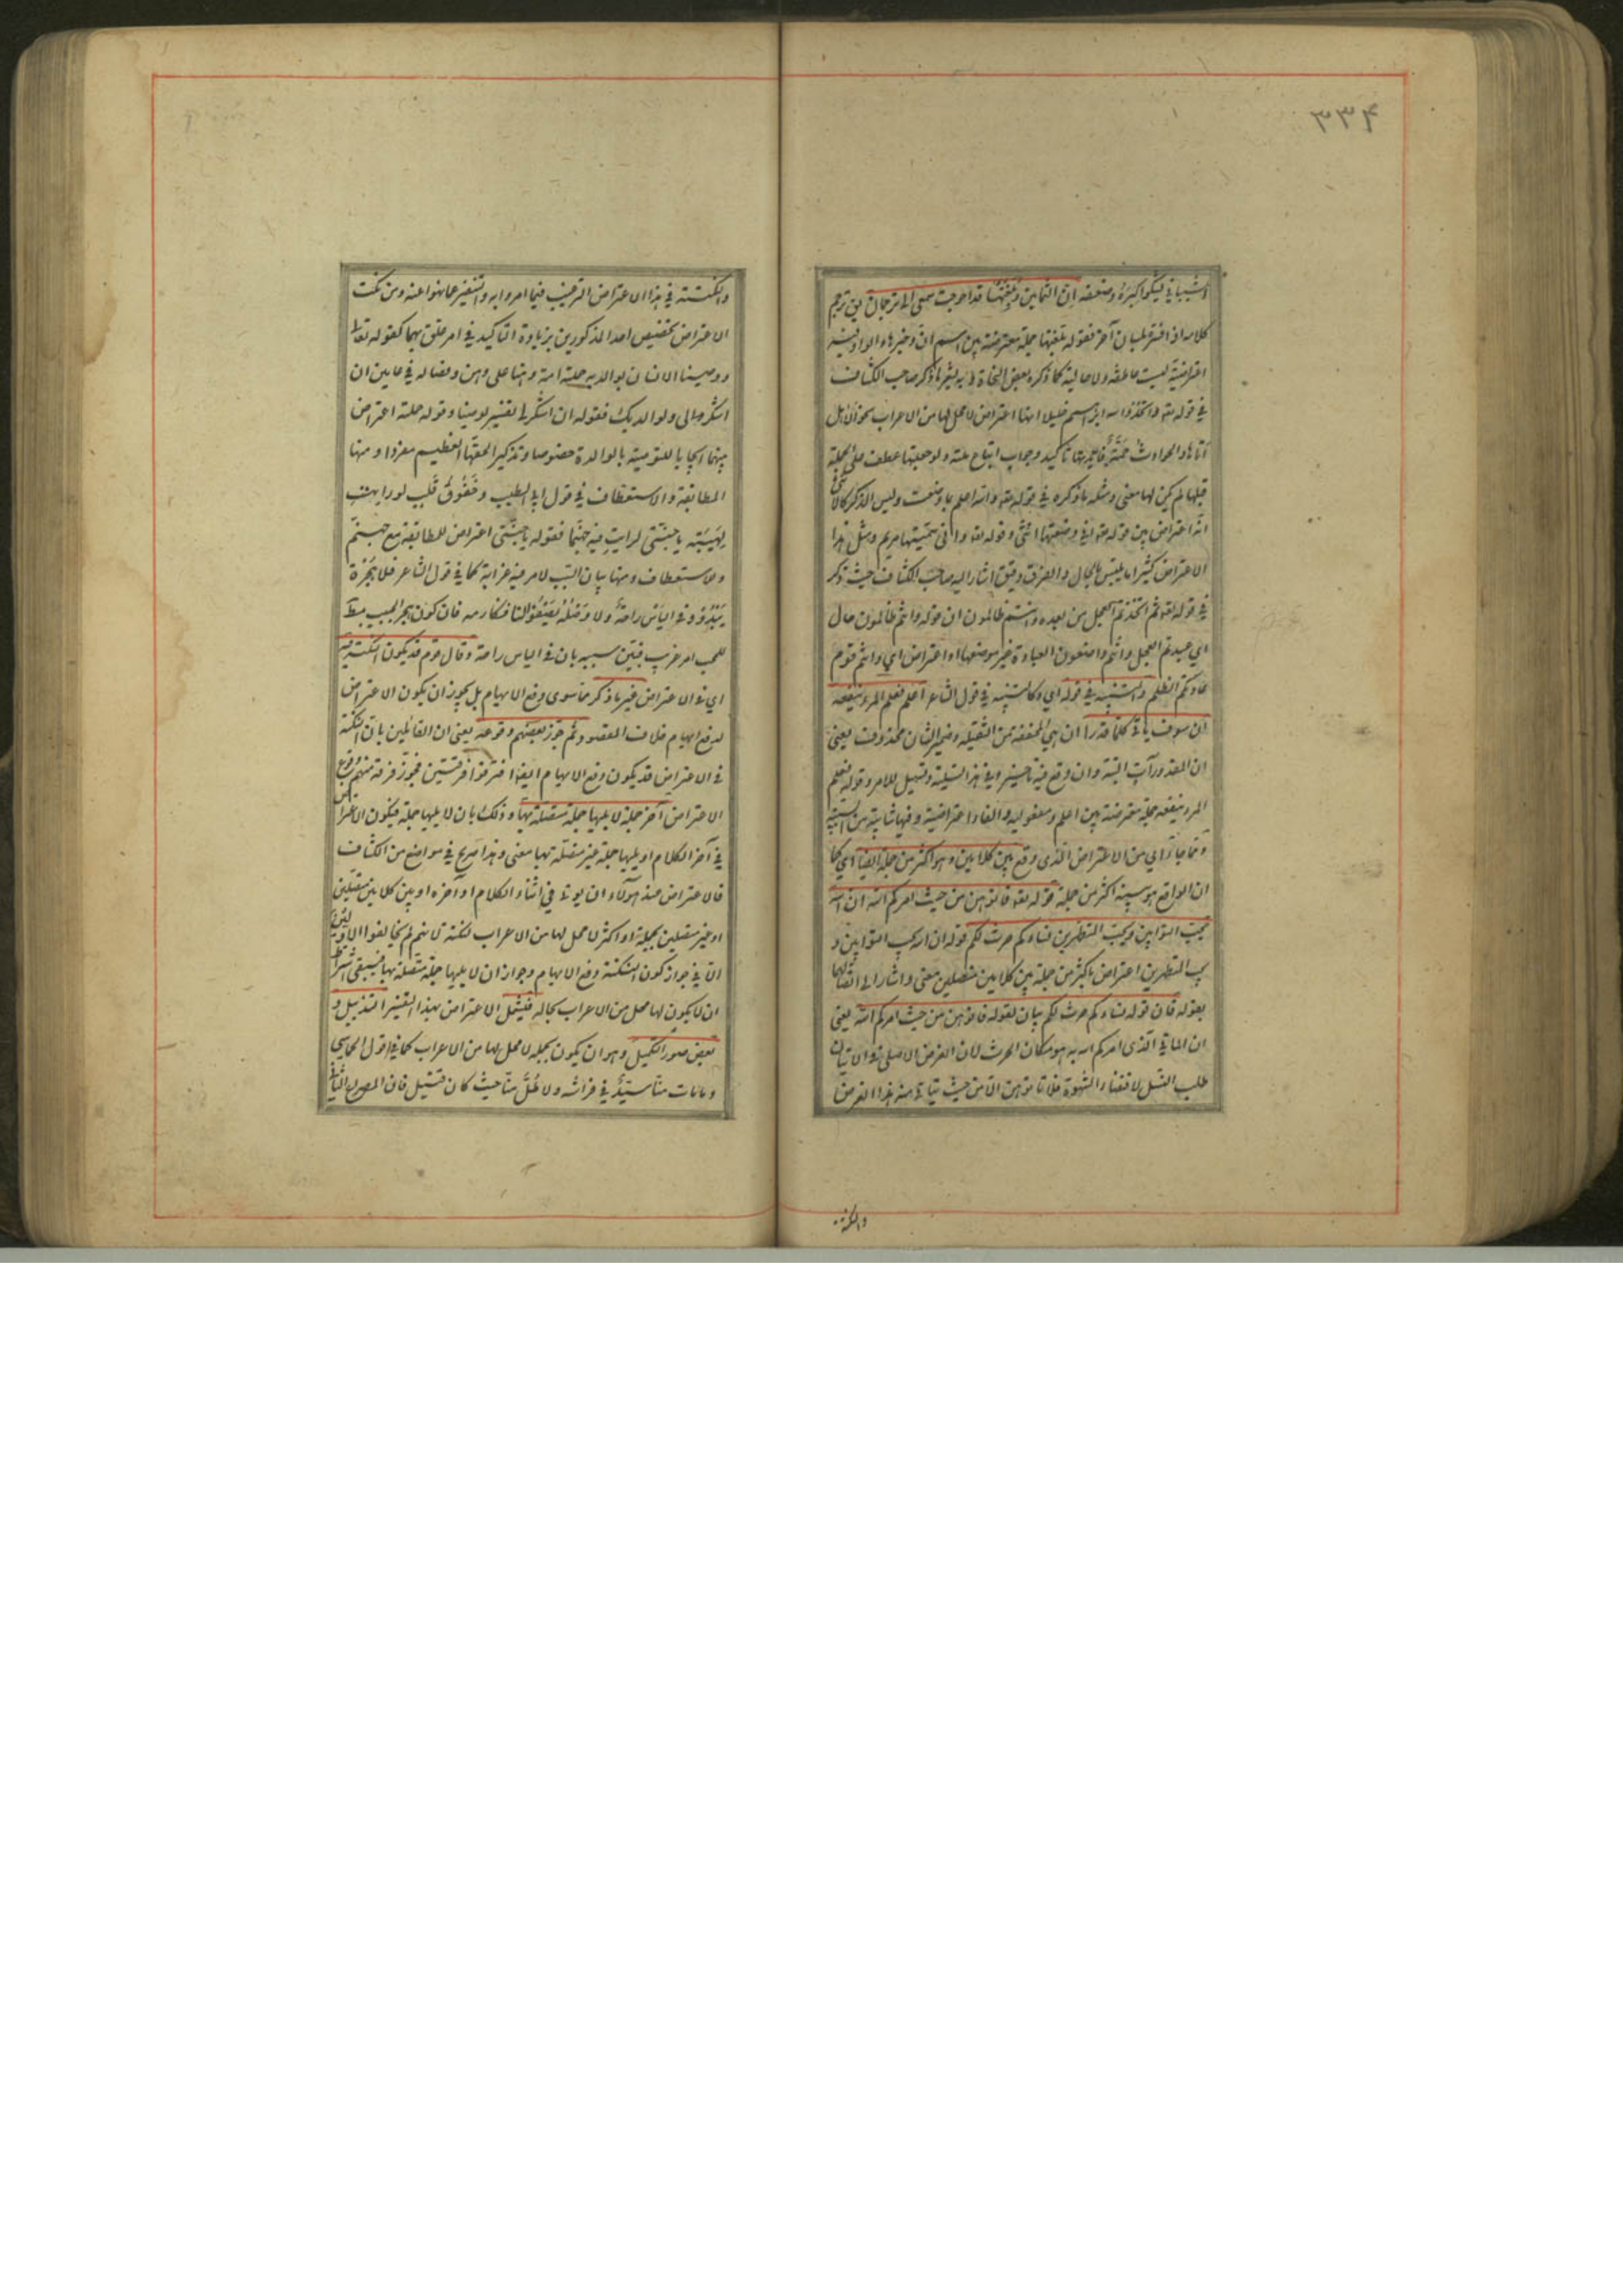 ٣٣٤
الشيباني يشكو كبره وضعفه ان الثمانين وبلغتها قد احوجت سمعي الى ترجمان يق ترجم
كلامه اذا فسره بلسان آخر فقوله بلغتها جملة معترضة بين اسم ان وخبرها والواو فيه
اعتراضية ليست عاطفة ولا حالية كما ذكره بعض النحاة وبه يشعر ما ذكر صاحب الكشاف
في قوله تعه واتخذ الله ابرهيم خليلا انها اعتراض لا محل لها من الاعراب نحو الا هل
اتاها والحوادث جمة فايدتها تاكيد وجوب اتباع ملته ولو جعلتها عطفا على الجملة
قبلها لم يكن لها معنى ومثله ما ذكره في قوله تعه والله اعلم بما وضعت وليس الذكر كالانثى
انه اعتراض بين قوله تعه اني وضعتها انثى وقوله تعه واني سميتها مريم ومثل هذا
الاعتراض كثيرا ما يلتبس بالحال والفرق دقيق اشار اليه صاحب الكشاف حيث ذكر
في قوله تعه ثم اتخذتم العجل من بعده وانتم ظالمون ان قوله وانتم ظالمون حال
اي عبدتم العجل وانتم واضعون العبادة غير موضعها او اعتراض اي وانتم قوم
عادتكم الظلم والتنبيه في قوله اي وكالتنبيه في قول الشاعر اعلم فعلم المرء ينفعه
ان سوف ياتي كلما قدرا ان هي المخففة من الثقيلة وضمير الشان محذوف يعني
ان المقدور آت البتة وان وقع فيه تاخير وفي هذا تسلية وتسهيل للامر وقوله فعلم
المرء ينفعه جملة معترضة بين اعلم ومفعوليه والفاء اعتراضية وفيها شائبة من السببية
ومما جاء اي من الاعتراض الذي وقع بين كلامين وهو اكثر من جملة ايضا اي كما
ان الواقع هو بينه اكثر من جملة قوله تعه فاتوهن من حيث امركم الله ان الله
يحب التوابين ويحب المتطهرين نساءكم حرث لكم قوله ان الله يحب التوابين و
يحب المتطهرين اعتراض باكثر من جملة بين كلامين متصلين معنى واشار الى اتصالهما
بقوله فان قوله نساءكم حرث لكم بيان لقوله فاتوهن من حيث امركم الله يعني
ان الماتي الذي امركم الله به هو مكان الحرث لان الغرض الاصلي في الاتيان
طلب النسل لا قضاء الشهوة فلا تاتوهن الا من حيث يتاتى منه هذا الغرض
والنكتة
والنكتة في هذا الاعتراض الترغيب فيما امروا به والتنفير عما نهوا عنه ومن نكت
الاعتراض تخصيص احد المذكورين بزيادة التاكيد في امر علق بهما كقوله تعالى
ووصينا الانسان بوالديه حملته امه وهنا على وهن وفصاله في عامين ان
اشكر لي ولوالديك فقوله ان اشكر لي تفسير لوصينا وقوله حملته اعتراض
بينهما ايجابا للتوصية بالوالدة خصوصا وتذكيرا لحقها العظيم مفردا ومنها
المطابقة والاستعطاف في قول ابي الطيب وخفوق قلب لو رايت
لهيبه يا جنتي لرايت فيه جهنما فقوله يا جنتي اعتراض للمطابقة مع جهنم
والاستعطاف ومنها بيان السبب لامر فيه غرابة كما في قول الشاعر فلا هجره
يبدو وفي الياس راحة ولا وصله يصفو لنا فنكارمه فان كون هجر الحبيب مط
للمحب امر غريب فبين سببه بان في الياس راحة وقال قوم قد يكون النكتة فيه
اي في الاعتراض غير ما ذكر مما سوى دفع الايهام بل يجوز ان يكون الاعتراض
لدفع ايهام خلاف المقصود ثم جوز بعضهم وقوعه يعني ان القائلين بان النكتة
في الاعتراض قد يكون دفع الايهام ايضا افترقوا فرقتين فجوز فرقة منهم وقوع
الاعتراض آخر جملة لا يليها جملة متصلة بها وذلك بان لا يليها جملة فيكون الاعتراض
في آخر الكلام او يليها جملة غير متصلة بها معنى وهذا صريح في مواضع من الكشاف
فالاعتراض عند هؤلاء ان يوتى في اثناء الكلام او آخره او بين كلامين متصلين
او غير متصلين بجملة او اكثر لا محل لها من الاعراب لنكتة لانهم لم يخالفوا الاولين
الا في جواز كون النكتة دفع الايهام وجواز ان لا يليها جملة متصلة بها فيبقى اشتراط
ان لا يكون لها محل من الاعراب بحاله فيشمل الاعتراض بهذا التفسير التذييل و
بعض صور التكميل وهو ان يكون بجملة لا محل لها من الاعراب كما في قول الحماسي
وما مات منا سيد في فراشه ولا طل منا حيث كان قتيل فان المصراع الثاني